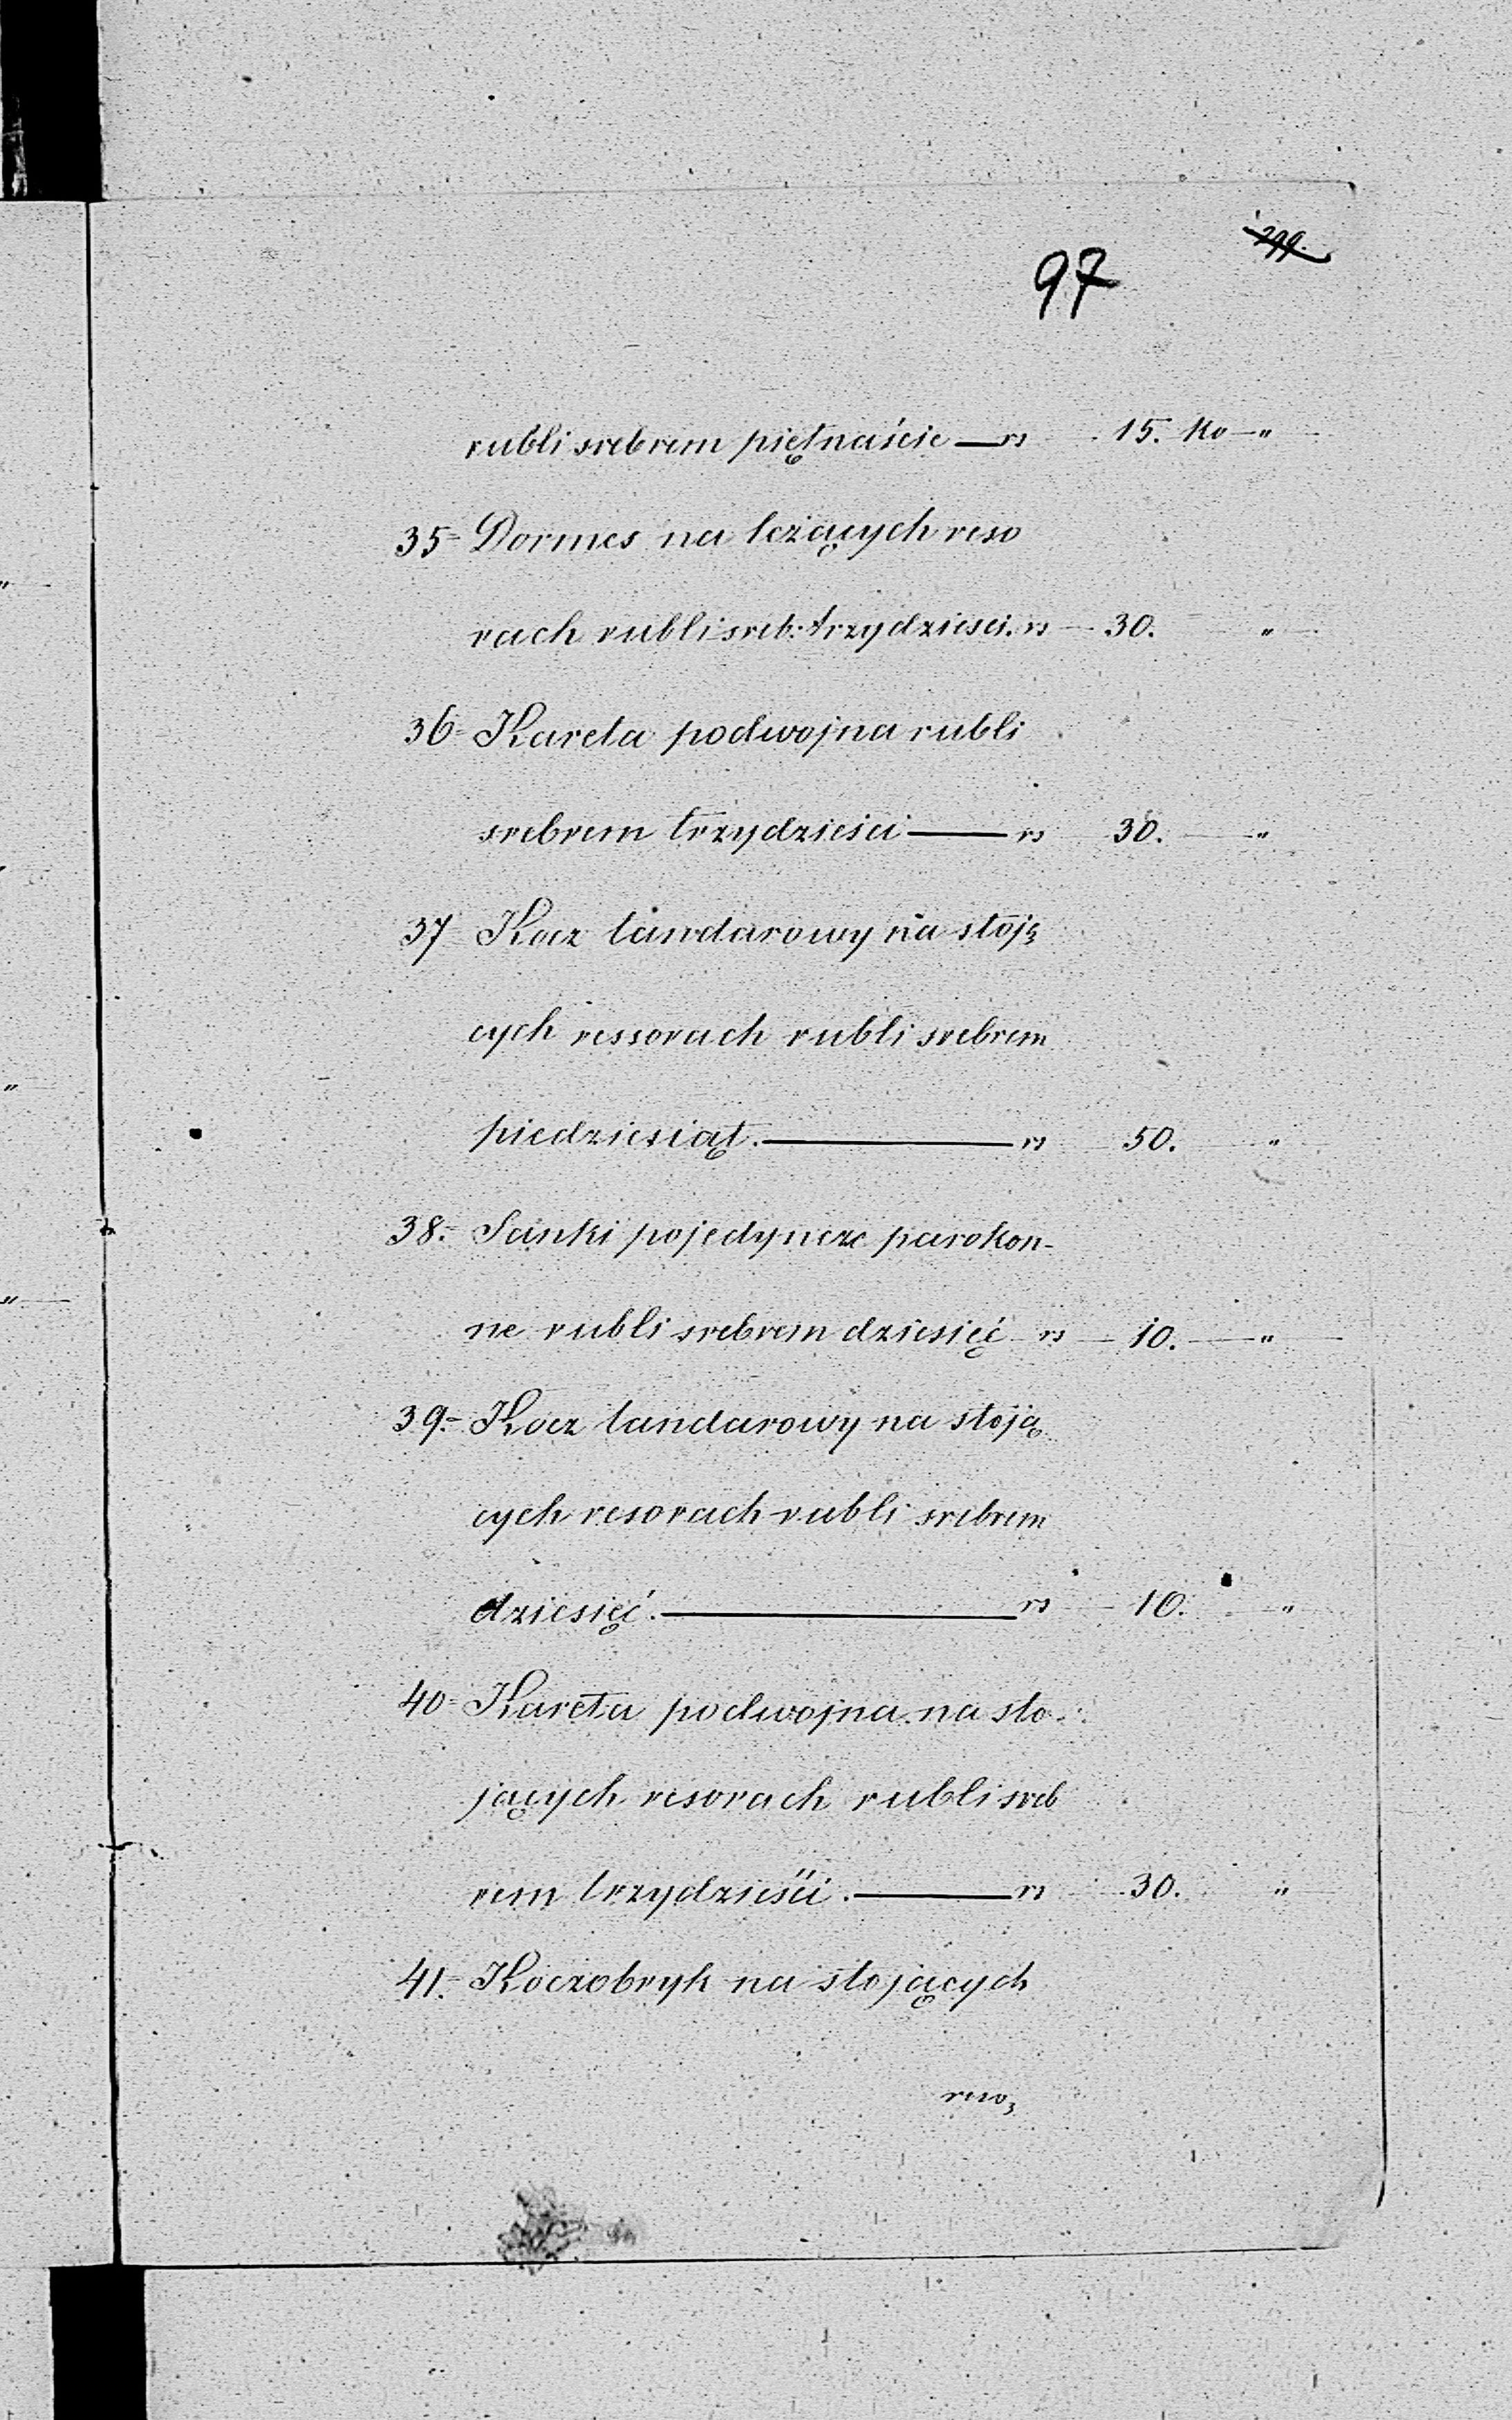 299.
97
rubli srebrem piętnaście — rs 15. ko — "
35 = Dormes na leżących reso
rach rubli sreb: trzydzieści. rs — 30. "
36 = Kareta podwojna rubli
srebrem trzydzieści — rs 30. — "
37 Kocz landarowy na stoją
cych ressorach rubli srebrem
piedziesiąt. — rs 50. "
38. = Sanki pojedyncze parokon-
ne rubli srebrem dziesięć rs — 10. — "
39. = Kocz landarowy na stoją
cych resorach rubli srebrem
dziesięć. — rs 10. — "
40 = Kareta podwojna na sto-
jących resorach rubli sreb
rem trzydzieści. — rs 30. "
41. = Koczobryk na stojących
reso